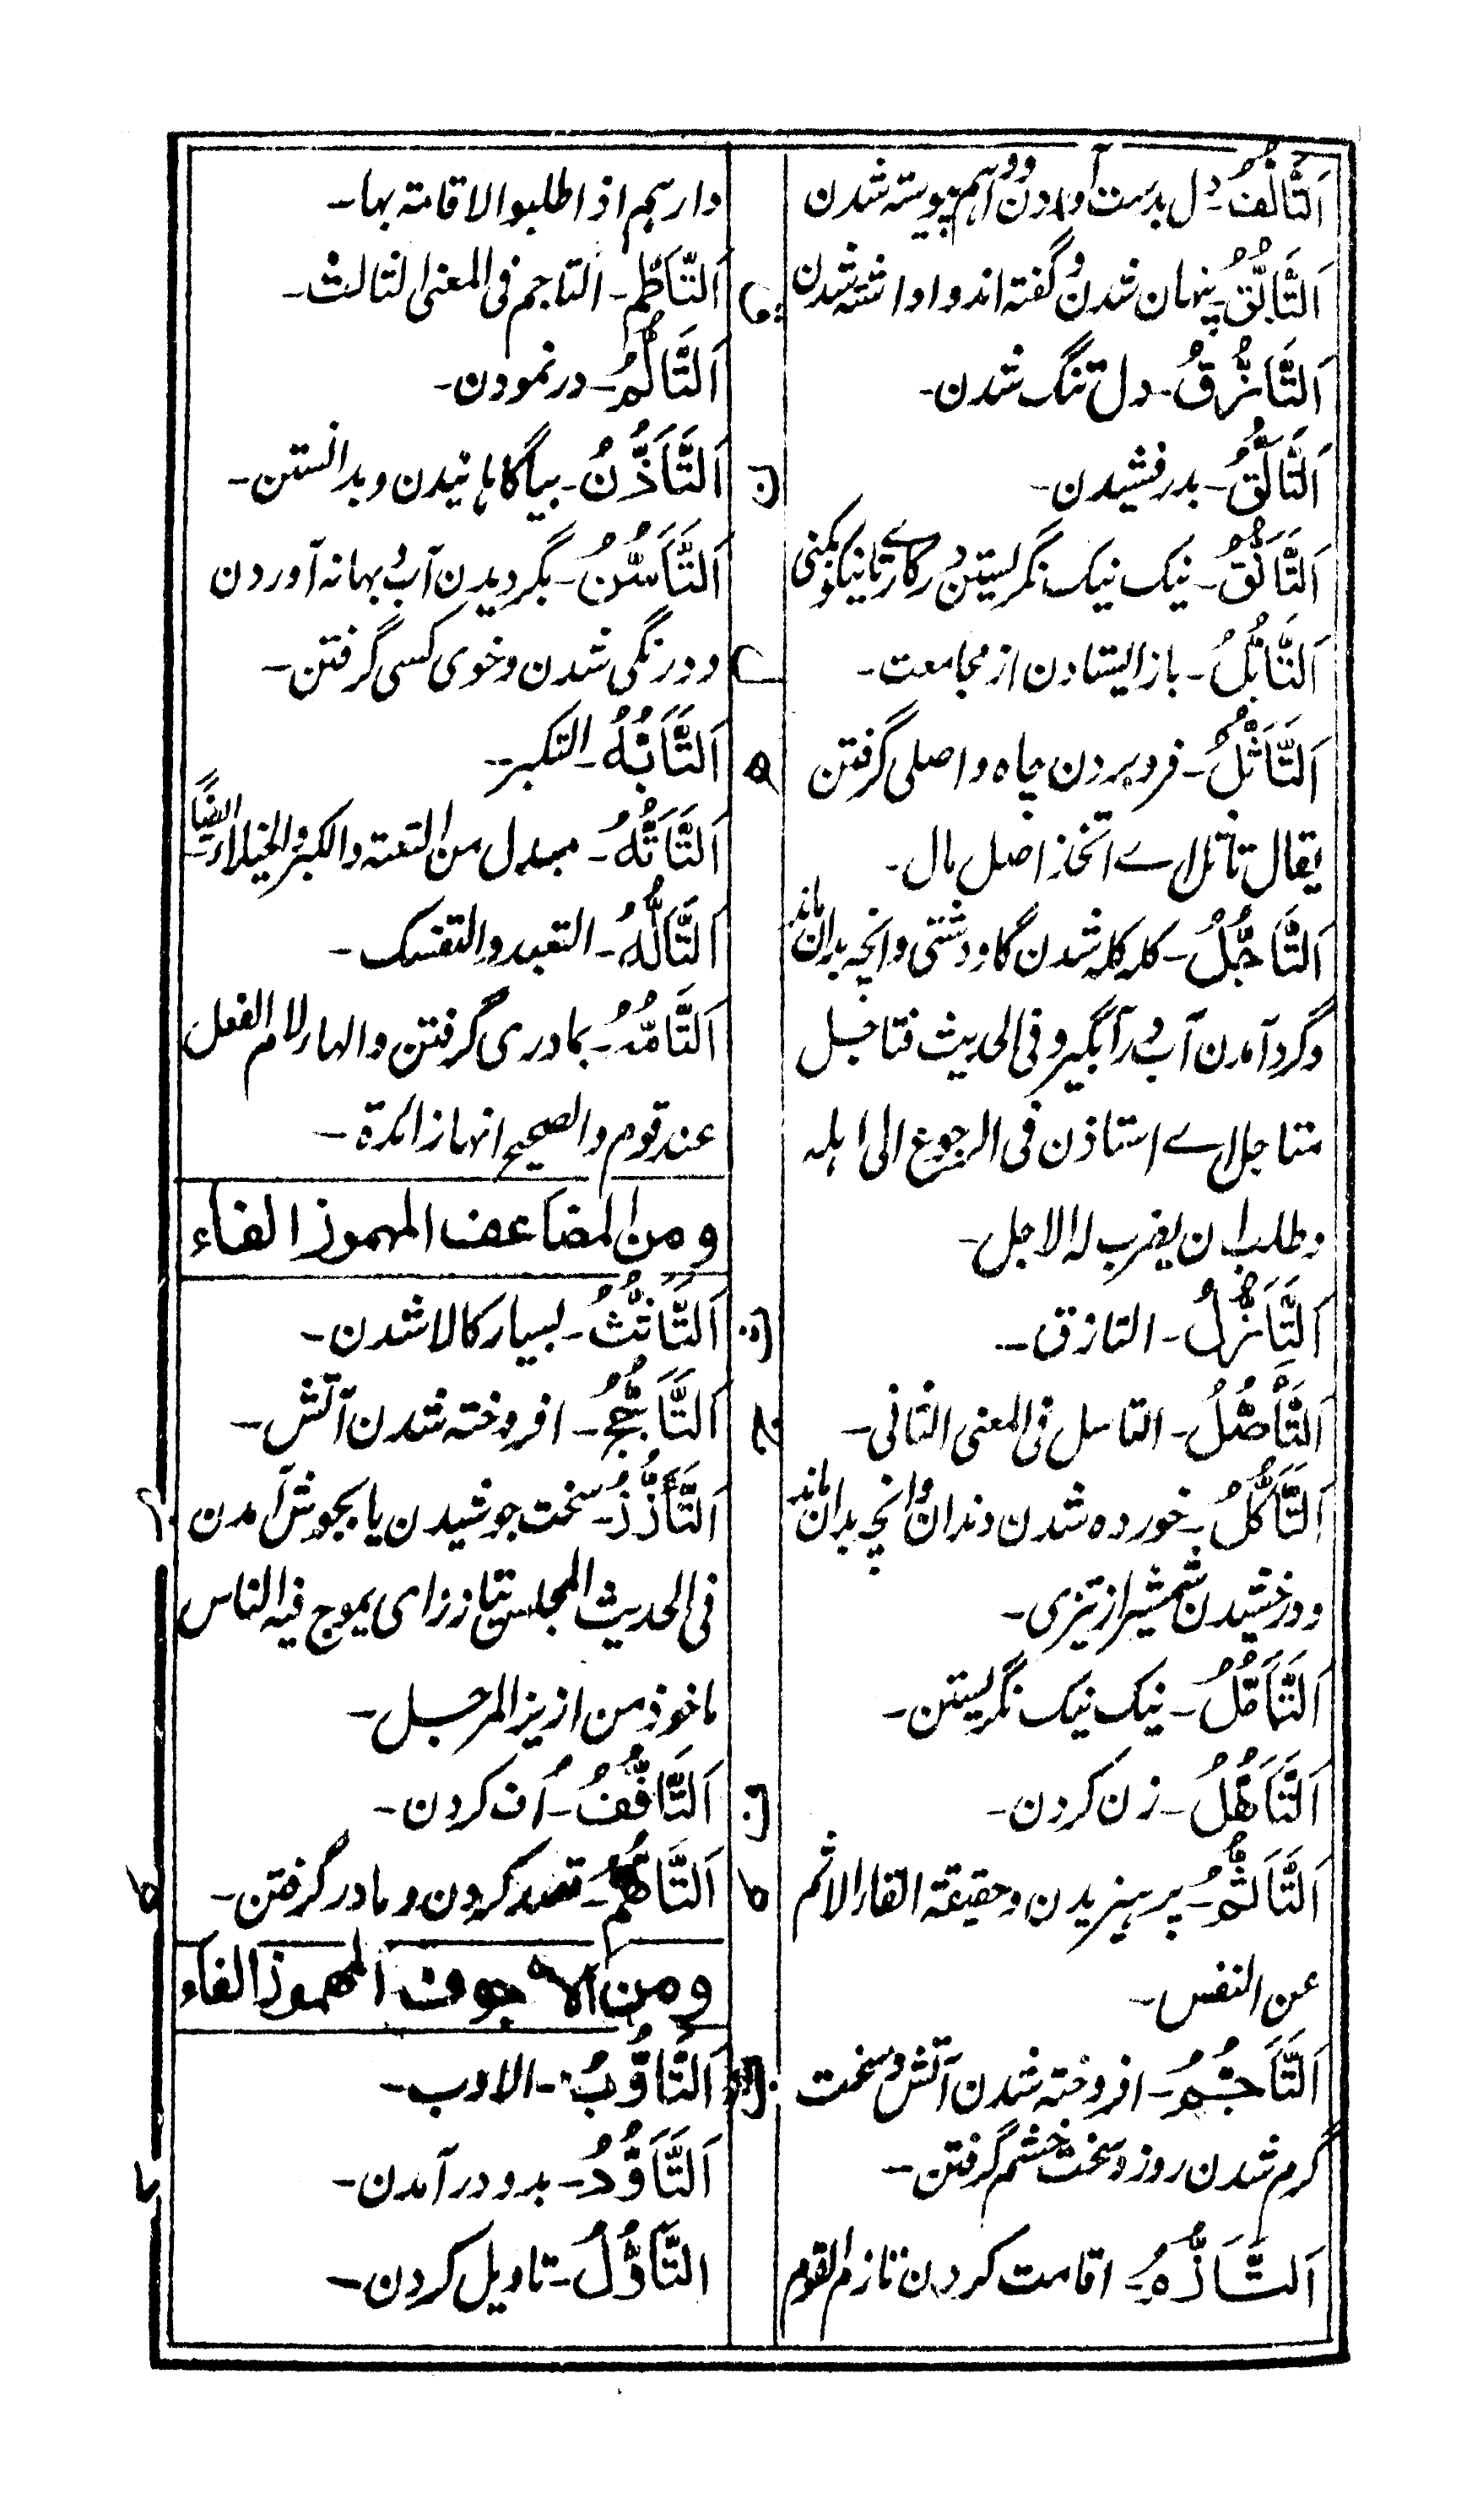 اَلتَّأَلُّفُ۔ دل بدست آوردن و باہم پیوستہ شدن
اَلتَّأَبُّقُ۔ پنہان شدن و گفتہ اند و اداشتہ شدن
اَلتَّأَزُّقُ۔ دل تنگ شدن۔
اَلتَّأَلُّقُ۔ بدرفشیدن۔
اَلتَّأَنُّقُ۔ نیک نیک نگریستن در کارے تا نیکو کنی
ل
اَلتَّأَبُّلُ۔ باز ایستادن از مجامعت۔
اَلتَّأَثُّلُ۔ فروبردن چاہ و اصلی گرفتن
یقال تاثل اے اتخذ اصل مال۔
اَلتَّأَجُّلُ۔ کلہ کلہ شدن گاو دشتی و آنچہ بدان ماند
و گرد آمدن آب در آبگیر و فی الحدیث فتاجل
متاجل اے استاذن فی الرجوع الی اہلہ
و طلب ان یضرب لہ الاجل۔
اَلتَّأَزُّلُ۔ التازق۔
اَلتَّأَصُّلُ۔ التاسل فی المعنی الثانی۔
اَلتَّأَكُّلُ۔ خوردہ شدن دندان و آنچہ بدان ماند
و درخشیدن شمشیر از تیزی۔
اَلتَّأَمُّلُ۔ نیک نیک نگریستن۔
اَلتَّأَهُّلُ۔ زن کردن۔
م
اَلتَّأَثُّمُ۔ پرہیزیدن و حقیقتہ القاء الاثم
عن النفس۔
اَلتَّأَجُّمُ۔ افروختہ شدن آتش و سخت
گرم شدن روز و سخت خشم گرفتن۔
اَلتَّأَزُّمُ۔ اقامت کردن تازم القوم
دارہم اذا اطلبوا الاقامتہ بہا۔
اَلتَّأَطُّمُ۔ التاجم فی المعنی الثالث۔
اَلتَّأَلُّمُ۔ درنمودن۔
ن
اَلتَّأَذُّنُ۔ بیاگاہانیدن و بدانستن۔
اَلتَّأَسُّنُ۔ بگردیدن آب و بہانہ آوردن
و درنگی شدن و خوی کسی گرفتن۔
ہ
اَلتَّأَبُّهُ۔ التکبر۔
اَلتَّأَتُّهُ۔ مبدل من التعتہ والکبر و الخیلاء ایضاً
اَلتَّأَلُّهُ۔ التعبد و التنسک۔
اَلتَّأَمُّهُ۔ بمادری گرفتن و الہاء لام الفعل
عند قوم و الصحیح انہا زائدۃ۔
و من المضاعف المہموز الفاء
ث
اَلتَّأَثُّثُ۔ بسیار کالا شدن۔
ج
اَلتَّأَجُّجُ۔ افروختہ شدن آتش۔
اَلتَّأَزُّزُ۔ سخت جوشیدن یا بجوش آمدن
فی الحدیث المجلس یتازز ای یموج فیہ الناس
ماخوذ من ازیز المرجل۔
ف
اَلتَّأَفُّفُ۔ اُف کردن۔
م
اَلتَّأَمُّمُ۔ قصد کردن و مادر گرفتن۔
و من الاجوف المہموز الفاء
ب
اَلتَّأَوُّبُ۔ الاوب۔
اَلتَّأَوُّدُ۔ بدو درآمدن۔
التَّأَوُّلُ۔ تاویل کردن۔